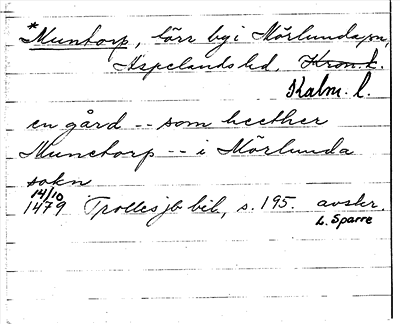 *Muntorp, förr by i Mörlunda sn,
Aspelands hd, Kron. l.
Kalm. l.
en gård -- som heether
Munetorp -- i Mörlunda
sokn
14/10
1479 Trolles jb bil, s. 195. avskr.
L. Sparre